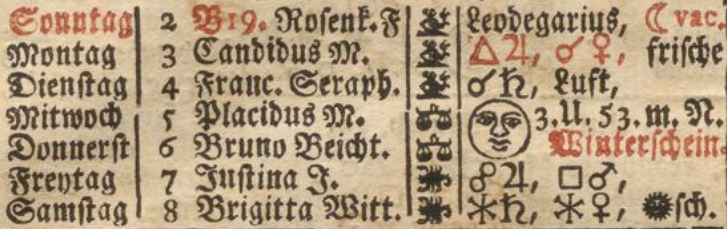 Sonntag 2 B19. Rosenk. F Leodegarius, ☾ vac.
Montag 3 Candidus M. △♃, ☌♀, frische
Dienstag 4 Franc. Seraph. ☌♄, Luft,
Mitwoch 5 Placidus M. 3. U. 53. m. N.
Donnerst 6 Bruno Beicht. Winterschein.
Freytag 7 Justina J. ☍♃, □♂,
Samstag 8 Brigitta Witt. ⚹♄, ⚹♀, ☀sch.